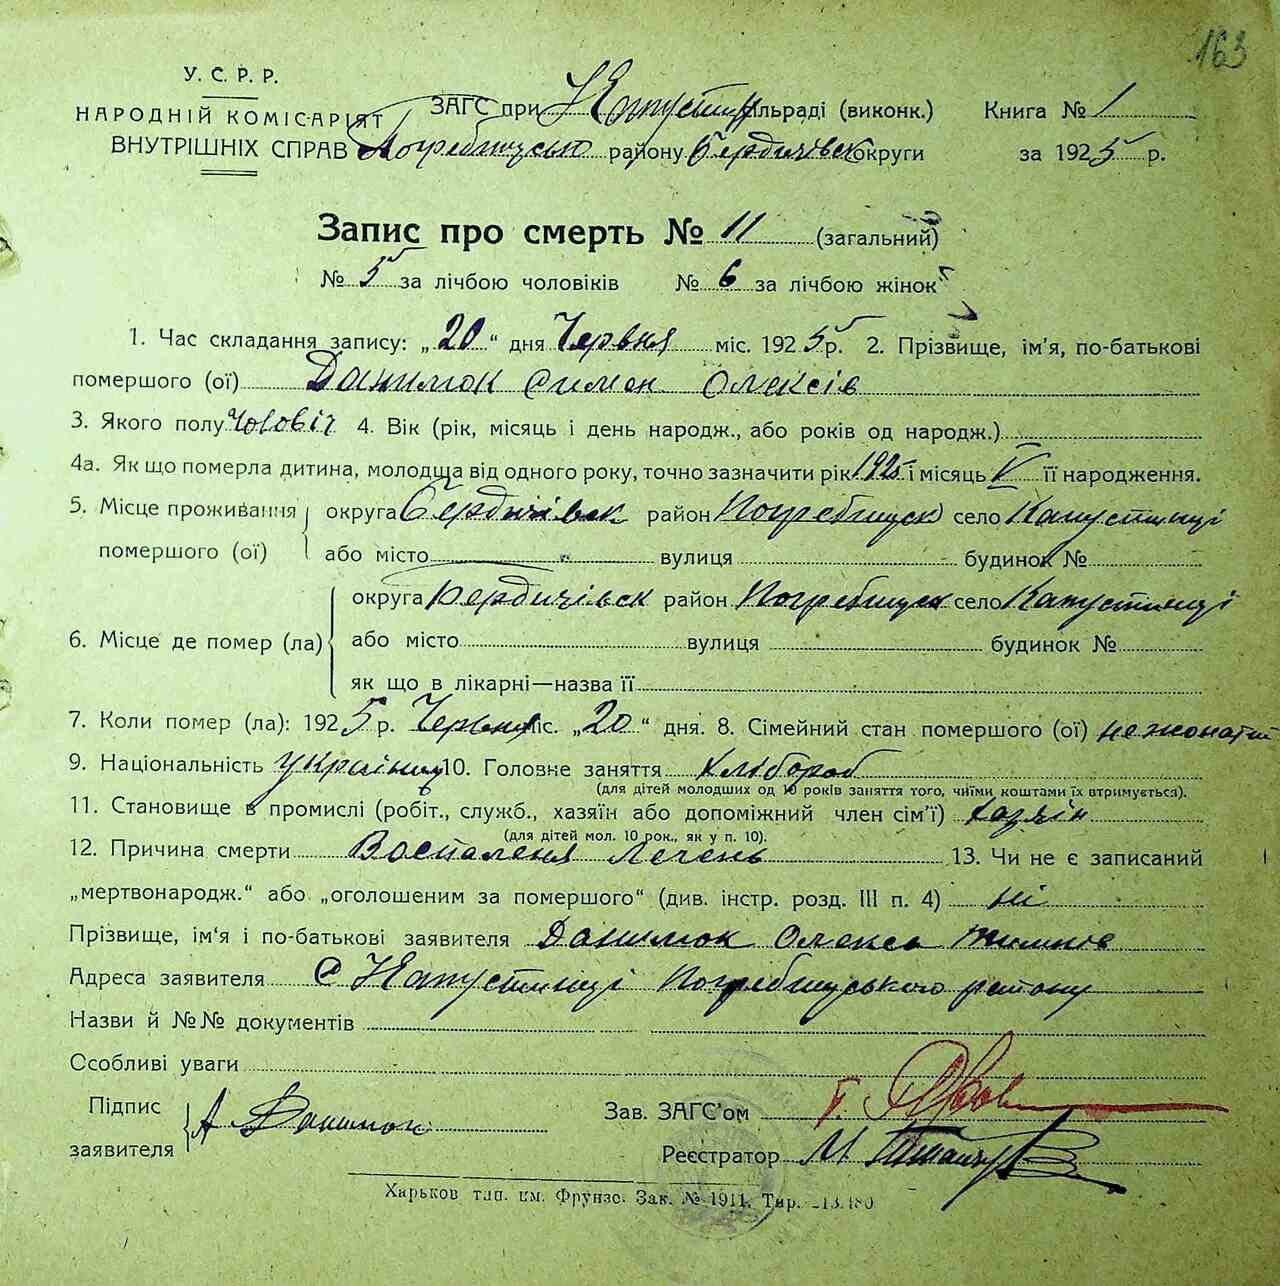 163
У. С. Р. Р.
НАРОДНІЙ КОМІСАРІЯТ
ВНУТРІШНІХ СПРАВ
ЗАГС при Капустин сільраді (виконк.)
Погребищсько району Бердичівск округи
Книга № 1
за 1925 р.
Запис про смерть № 11 (загальний)
№ 5 за лічбою чоловіків № 6 за лічбою жінок
1. Час складання запису: „20“ дня Червня міс. 1925 р. 2. Прізвище, ім'я, по-батькові
помершого (ої) Данилюк Симон Олексів
3. Якого полу Чоловіч 4. Вік (рік, місяць і день народж., або років од народж.)
4а. Як що померла дитина, молодща від одного року, точно зазначити рік 1925 і місяць V її народження.
5. Місце проживання помершого (ої) округа Бердичівск район Погребищск село Капустинці
або місто вулиця будинок №
6. Місце де помер (ла) округа Бердичівск район Погребищск село Капустинці
або місто вулиця будинок №
як що в лікарні—назва її
7. Коли помер (ла): 1925 р. Червня міс. „20“ дня. 8. Сімейний стан помершого (ої) нежонатий
9. Національність Українец 10. Головне заняття хлібороб
(для дітей молодших од 10 років заняття того, чиїми коштами їх втримується).
11. Становище в промислі (робіт., служб., хазяїн або допоміжний член сім'ї) хазяїн
(для дітей мол. 10 рок., як у п. 10).
12. Причина смерти Воспаленя Легень 13. Чи не є записаний
„мертвонародж.“ або „оголошеним за помершого“ (див. інстр. розд. III п. 4) ні
Прізвище, ім‘я і по-батькові заявителя Данилюк Олекса
Адреса заявителя с Капустинці Погребищського району
Назви й №№ документів
Особливі уваги
Підпис заявителя А Данилюк
Зав. ЗАГС'ом
Реєстратор
Харьков тип. им. Фрунзе. Зак. № 1911. Тир. 13.180